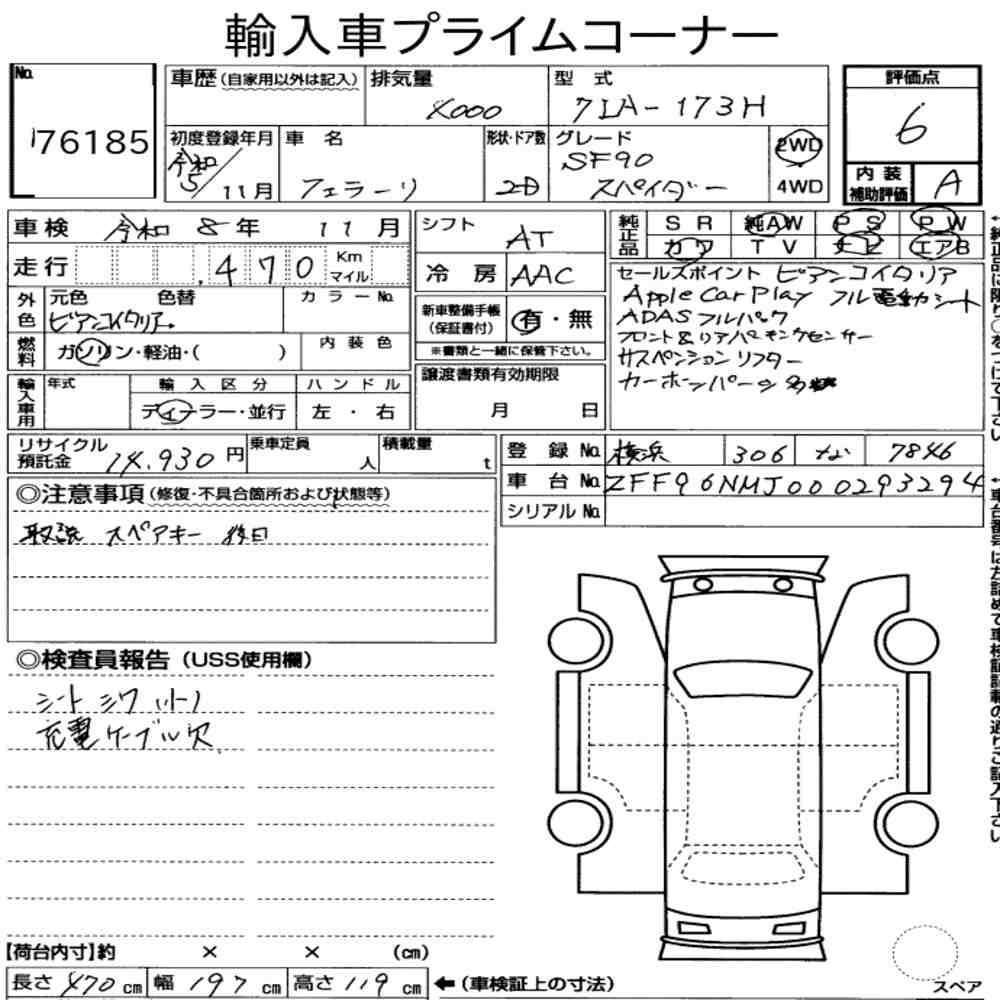 輸入車プライムコーナー
No. 76185
車歴(自家用以外は記入)
排気量 4000
型式 7LA-173H
評価点 6
初度登録年月 令和5/11月
車名 フェラーリ
形状・ドア数 2D
グレード SF90 スパイダー
2WD
4WD
内装補助評価 A
車検 令和8年11月
シフト AT
純正品 SR 純AW PS PW
カワ TV ナビ エアB
走行 470 Km マイル
冷房 AAC
セールスポイント ビアンコイタリア
Apple CarPlay フル電動シート
ADASフルパック
フロント&リアパーキングセンサー
サスペンションリフター
カーボンパーツ多数
外色 元色 色替 カラーNo.
ビアンコイタリア
新車整備手帳(保証書付) 有・無
※書類と一緒に保管下さい。
燃料 ガソリン・軽油・( )
内装色
譲渡書類有効期限
月 日
輸入車用 年式 輸入区分 ハンドル
ディーラー・並行 左・右
リサイクル預託金 14,930円
乗車定員 人
積載量 t
登録No. 横浜 306 な 7846
車台No. ZFF96NMJ000293294
シリアルNo.
◎注意事項(修復・不具合箇所および状態等)
取説 スペアキー 後日
◎検査員報告(USS使用欄)
シートシワ
充電ケーブル欠
【荷台内寸】約 × × (cm)
長さ470cm 幅197cm 高さ119cm ←(車検証上の寸法)
スペア